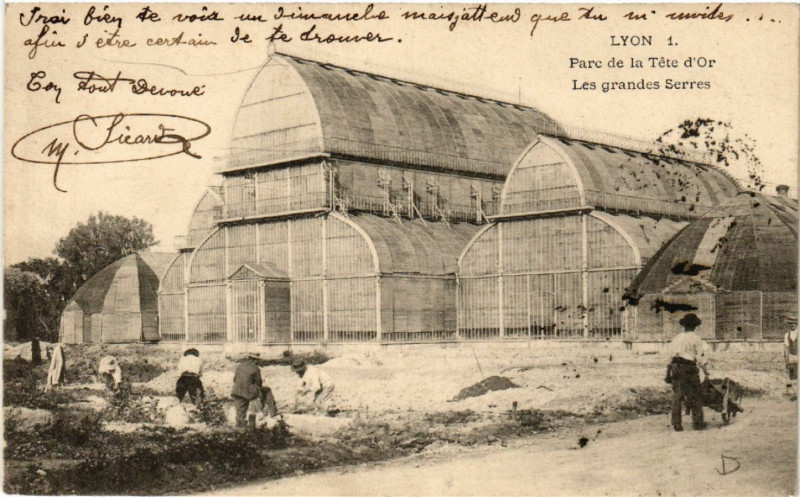 Irai bien te voir un Dimanche mais j'attend que tu m'invites ...
afin d'être certain de te trouver.
Ton tout Devoué
M. Sicard
LYON 1.
Parc de la Tête d'Or
Les grandes Serres
D